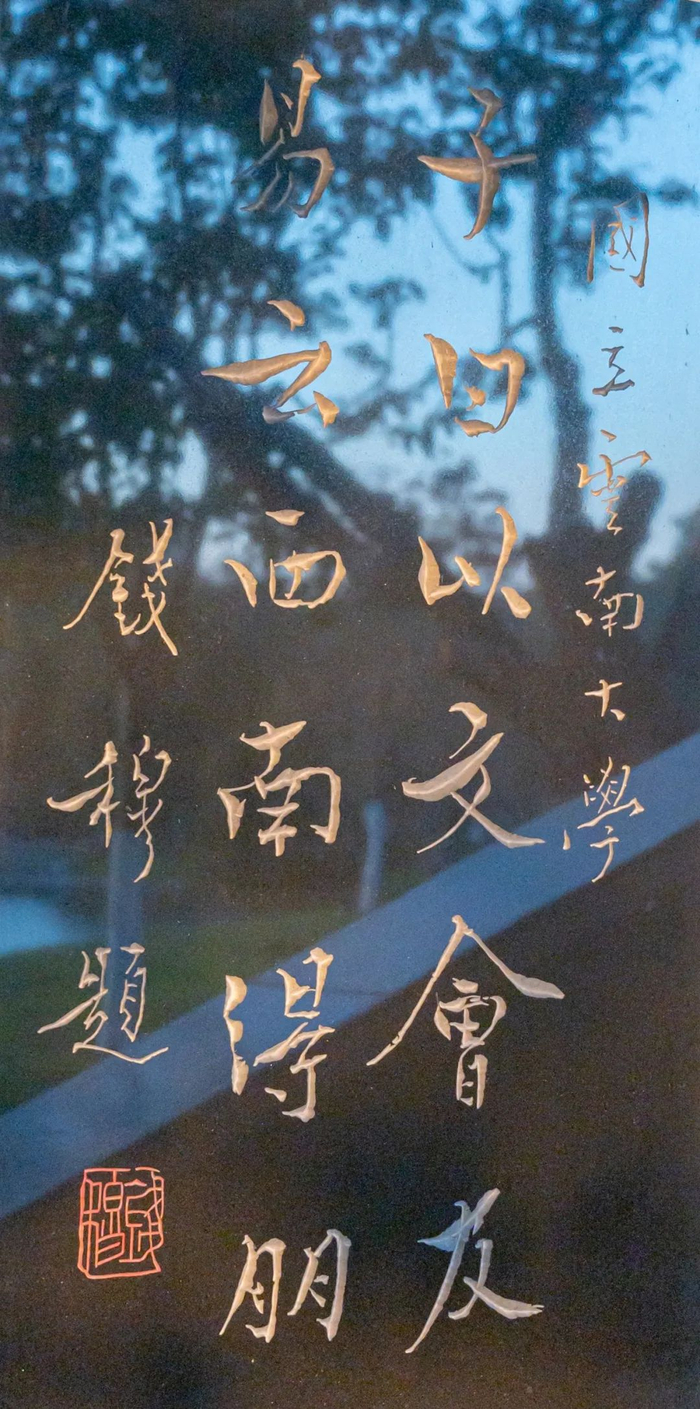 國立雲南大學
子曰以文會友
易云西南得朋
錢穆題
錢穆